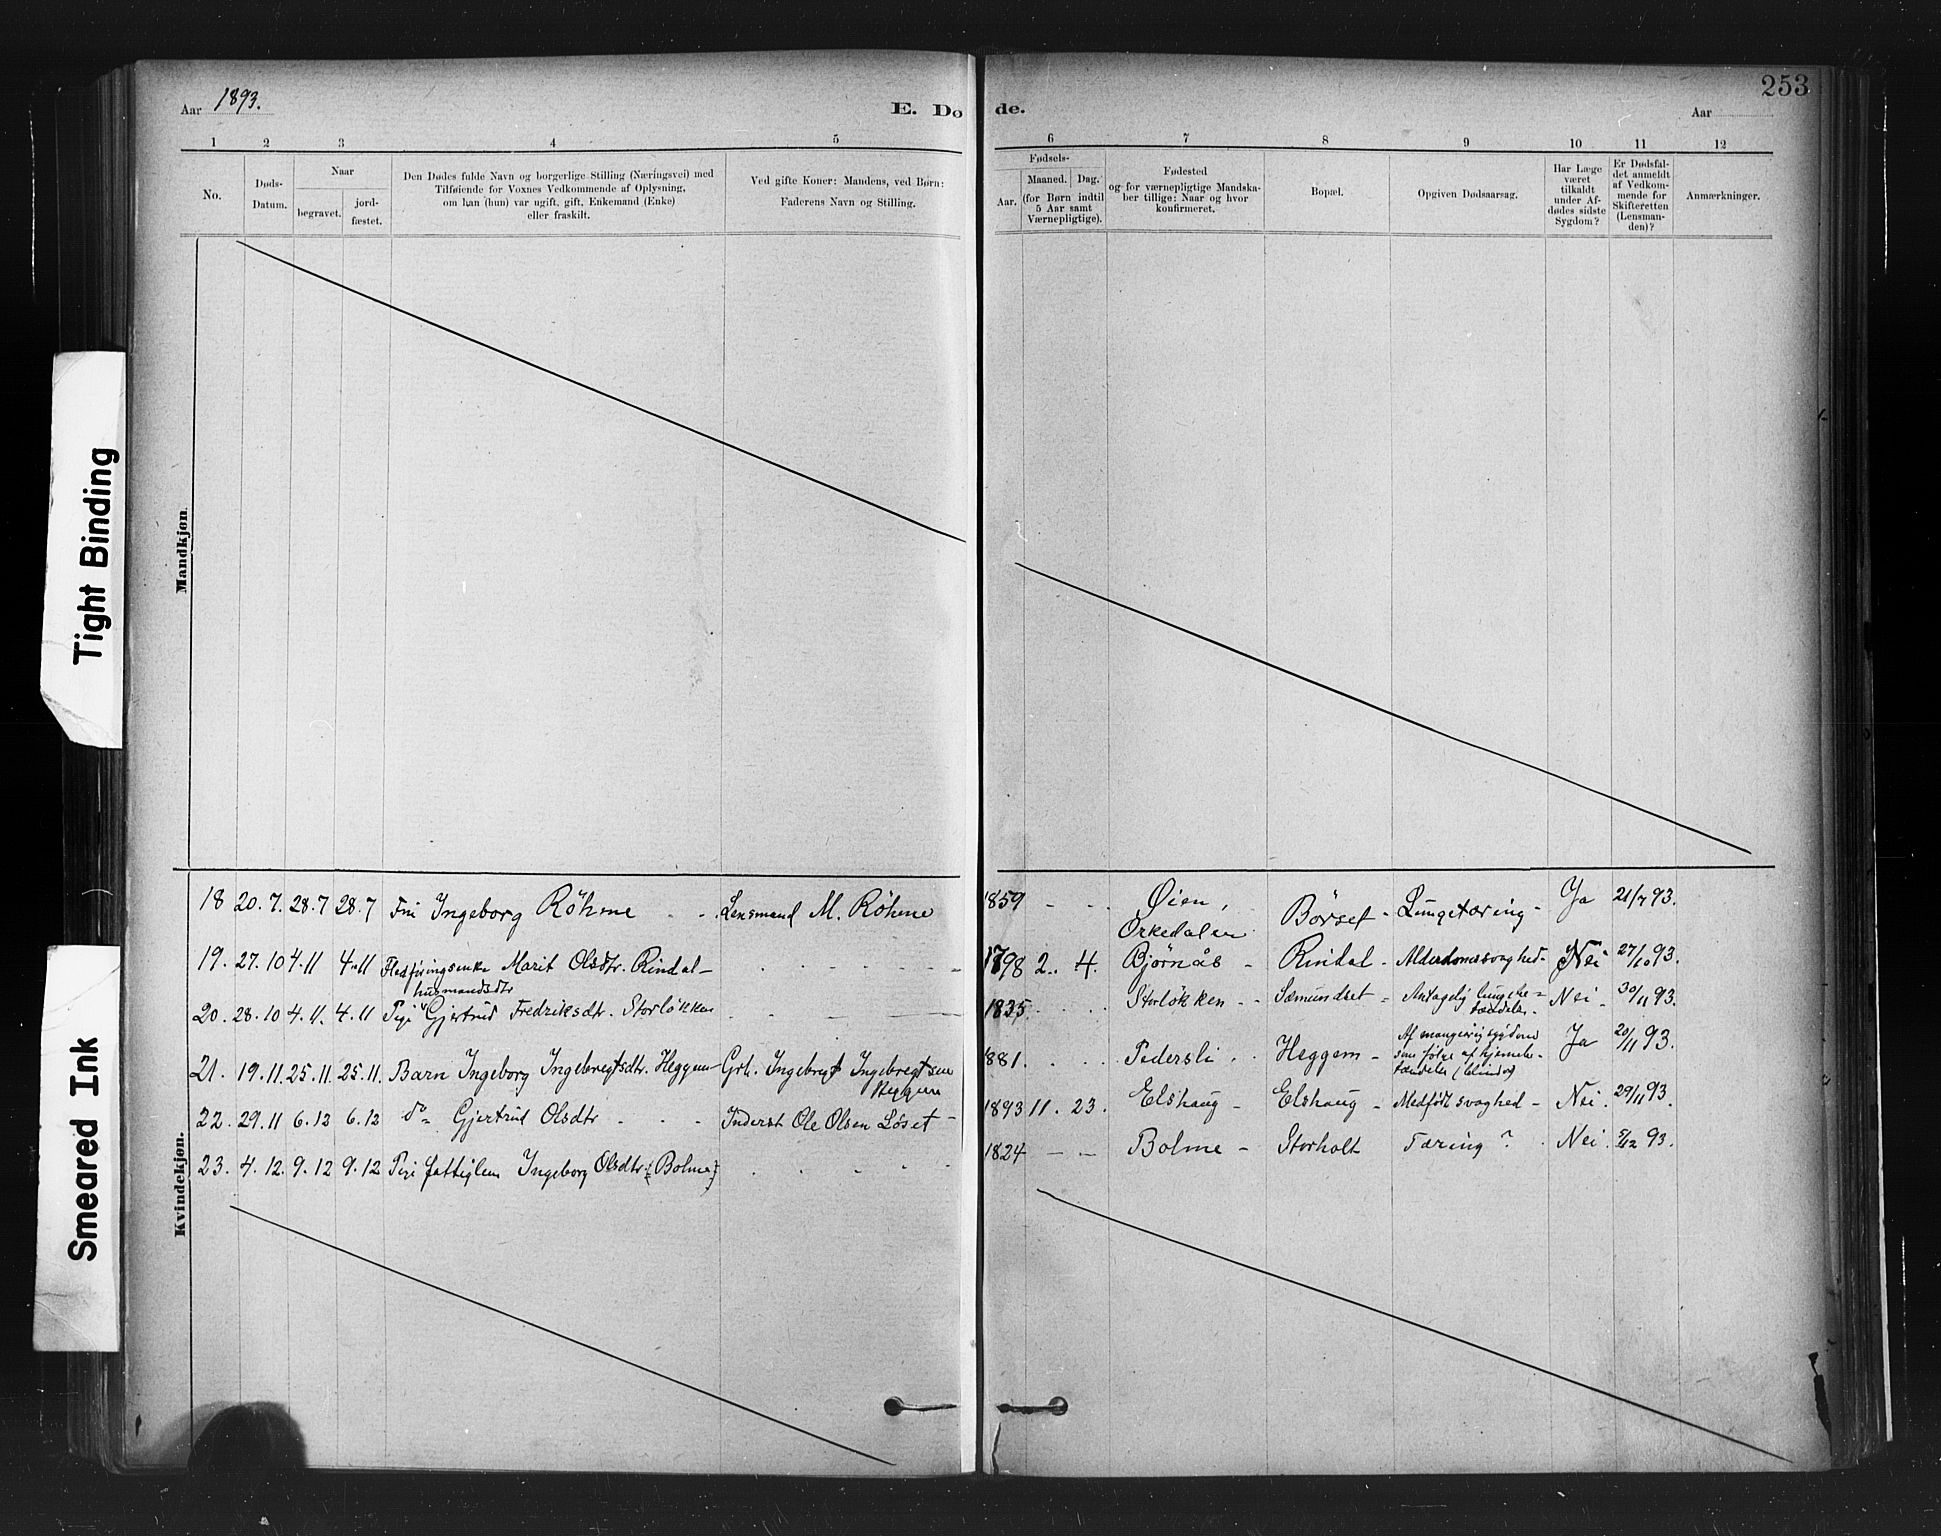 253
Aar 1893.
E. Do de.
Aar
1 2 3 4 5 6 7 8 9 10 11 12
No.
Døds-
Datum.
Naar
begravet.
jord-
fæstet.
Den Dødes fulde Navn og borgerlige Stilling (Næringsvei) med
Tilføiende for Voxnes Vedkommende af Oplysning,
om han (hun) var ugift, gift, Enkemand (Enke)
eller fraskilt.
Ved gifte Koner: Mandens, ved Børn:
Faderens Navn og Stilling.
Fødsels-
Aar.
Maaned. Dag.
(for Børn indtil
5 Aar samt
Værnepligtige).
Fødested
og for værnepligtige Mandska-
ber tillige: Naar og hvor
konfirmeret.
Bopæl.
Opgiven Dødsaarsag.
Har Læge
været
tilkaldt
under Af-
dødes sidste
Sygdom?
Er Dødsfal-
det anmeldt
af Vedkom-
mende for
Skifteretten
(Lensman-
den)?
Anmærkninger.
Tight Binding
Mandkjøn.
Smeared Ink
Kvindekjøn.
18 20.7. 28.7 28.7 Fru Ingeborg Röhme - - Lensmand M. Röhme 1859 - - Øien, Orkedalen Börset - Lungetæring - Ja 21/7 93.
19. 27.10 4.11 4.11 Marit Olsdtr. Rindal - 1798 2. 4. Bjørnås - Rindal - Alderdomssvaghed - Nei 27/10 93.
husmandsdtr
20. 28.10 4.11. 4.11 Pige Gjertrud Fredriksdtr. Storløkken 1835 Storløkken - - Sæmundset - Antagelig lungebe-
tændelse - Nei - 30/11 93.
21. 19.11. 25.11. 25.11. Barn Ingeborg Ingebregtsdtr. Heggem Grb. Ingebregt Ingebregtsen
Heggem 1881. Pedersli . . Heggem - Af mangeårig sygdom
som følge af hjernebe-
tændelse (blind) Ja 20/11 93.
22. 29.11 6.12 6.12 do Gjertrud Olsdtr - - Inderst Ole Olsen Löset - 1893 11. 23. Elshaug - Elshaug - Medfødt svaghed - Nei . 29/11 93.
23. 4.12. 9.12 9.12 Pige fattiglem Ingeborg Olsdtr. (Bolme) 1824 - - Bolme - Storholt Tæring? Nei . 5/12 93.